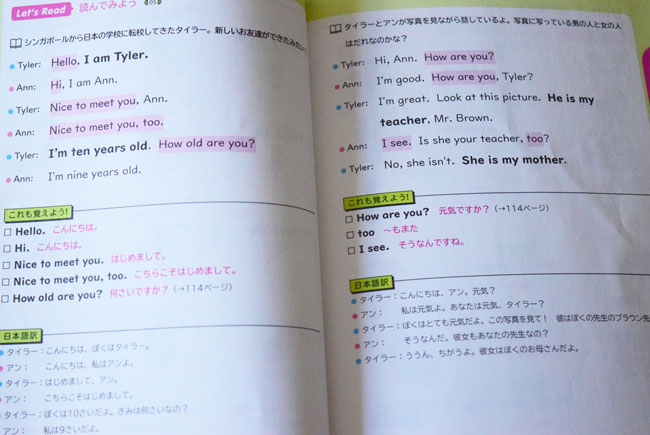 Let's Read 読んでみよう
シンガポールから日本の学校に転校してきたタイラー。新しいお友達ができたみたい。
Tyler: Hello, I am Tyler.
Ann: Hi, I am Ann.
Tyler: Nice to meet you, Ann.
Ann: Nice to meet you, too.
Tyler: I'm ten years old. How old are you?
Ann: I'm nine years old.
これも覚えよう!
□ Hello. こんにちは。
□ Hi. こんにちは。
□ Nice to meet you. はじめまして。
□ Nice to meet you, too. こちらこそはじめまして。
□ How old are you? 何さいですか? (→114ページ)
日本語訳
タイラー:こんにちは、ぼくはタイラー。
アン: こんにちは、私はアンよ。
タイラー:はじめまして、アン。
アン: こちらこそはじめまして。
タイラー:ぼくは10さいだよ。きみは何さいなの?
アン: 私は9さいだよ。
タイラーとアンが写真を見ながら話しているよ。写真に写っている男の人と女の人
はだれなのかな?
Tyler: Hi, Ann. How are you?
Ann: I'm good. How are you, Tyler?
Tyler: I'm great. Look at this picture. He is my
teacher, Mr. Brown.
Ann: I see. Is she your teacher, too?
Tyler: No, she isn't. She is my mother.
これも覚えよう!
□ How are you? 元気ですか? (→114ページ)
□ too 〜もまた
□ I see. そうなんですね。
日本語訳
タイラー:こんにちは、アン。元気?
アン: 私は元気よ。あなたは元気、タイラー?
タイラー:ぼくはとても元気だよ。この写真を見て! 彼はぼくの先生のブラウン先
アン: そうなんだ。彼女もあなたの先生なの?
タイラー:ううん、ちがうよ。彼女はぼくのお母さんだよ。